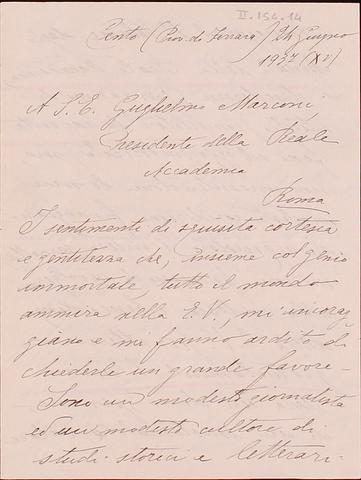 II-154-14
Cento (Prov. di Ferrara) 24 Giugno
1937 (XV)
A S. E. Guglielmo Marconi
Presidente della Reale
Accademia
Roma
I sentimenti di squisita cortesia
e gentilezza che, insieme col genio
immortale, tutto il mondo
ammira nella E. V., mi incorag-
giano e mi fanno ardito di
chiederle un grande favore-
Sono un modesto giornalista
ed un modesto cultore di
studi storici e letterari-